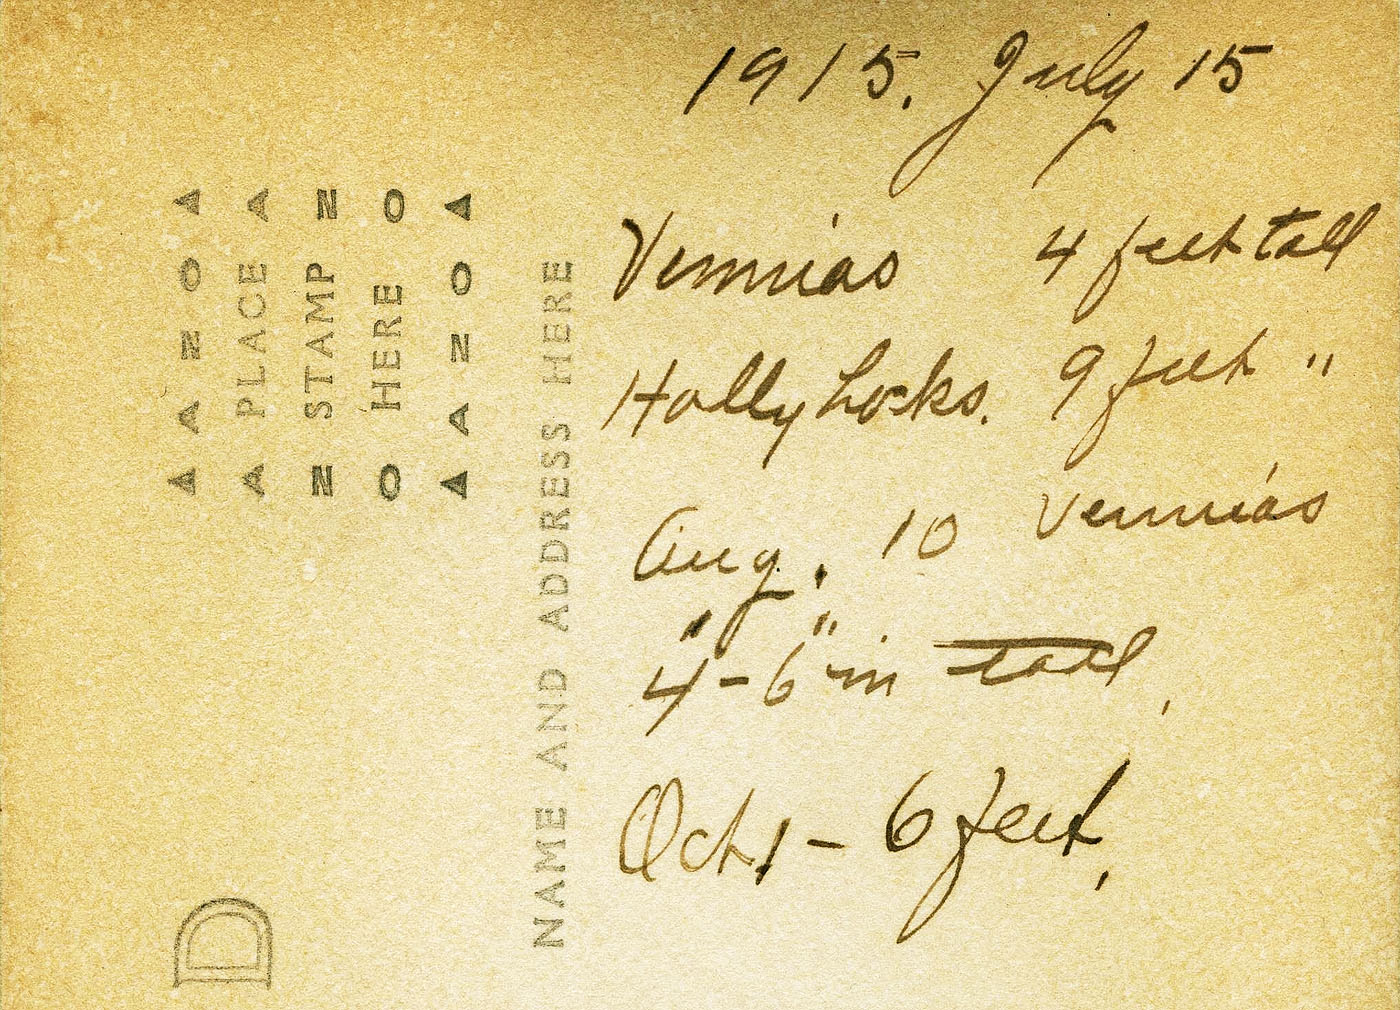 1915. July 15
Vennias 4 feet tall
Holly hocks. 9 feet "
Aug. 10 Vennias
" "
4-6 in tall,
Oct 1 - 6 feet,
A A Z O A
A PLACE A
N STAMP N
O HERE O
A A Z O A
NAME AND ADDRESS HERE